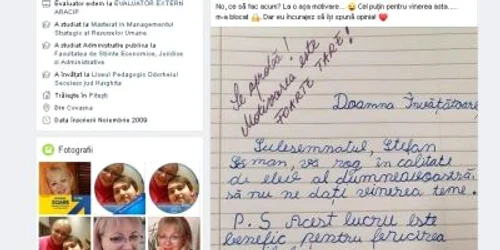 Evaluator extern la EVALUATOR EXTERN
ARACIP
A studiat la Masterat in Managementul
Strategic al Resurselor Umane
A studiat Administrație publica la
Facultatea de Stiinte Economice, Juridice si
Administrative
A învățat la Liceul Pedagogic Odorheiul
Secuiesc jud Harghita
Trăiește în Pitești
Din Covasna
Data înscrierii Noiembrie 2009
Fotografii
No, ce să fac acum? La o așa motivare.... Cel puțin pentru vinerea asta.....
m-a blocat. Dar eu încurajez să își spună opinia!
Se aprobă!
Motivarea este
FOARTE TARE!
Doamna Învățătoare,
Subsemnatul, Ștefan
vă rog în calitate
de elev al dumneavoastră
să nu ne dați vinerea teme.
P.S Acest lucru este
benefic pentru fericirea